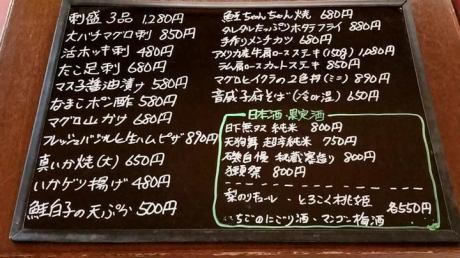 刺盛 3品 1,280円
大バチマグロ刺 850円
活ホッキ刺 480円
たこ足刺 680円
マス子醤油漬け 580円
なまこポン酢 580円
マグロ山かけ 680円
フレッシュバジルと生ハムピザ 890円
真いか焼(大) 650円
いかゲソ揚げ 480円
鮭白子の天ぷら 500円
鮭ちゃんちゃん焼 680円
タルタルたっぷりホタテフライ 880円
手作りメンチカツ 680円
アメリカ産牛肩ロースステーキ(150g) 1,080円
ラム肩ロースカットステーキ 850円
マグロとイクラの2色丼(ミニ) 890円
音威子府そば(冷or温) 650円
日本酒・果実酒
純米 800円
天狗舞 超辛純米 750円
磯自慢 秘蔵寒造り 800円
獺祭 800円
梨のリキュール・とろこく桃姫
いちごのにごり酒・マンゴー梅酒
各550円